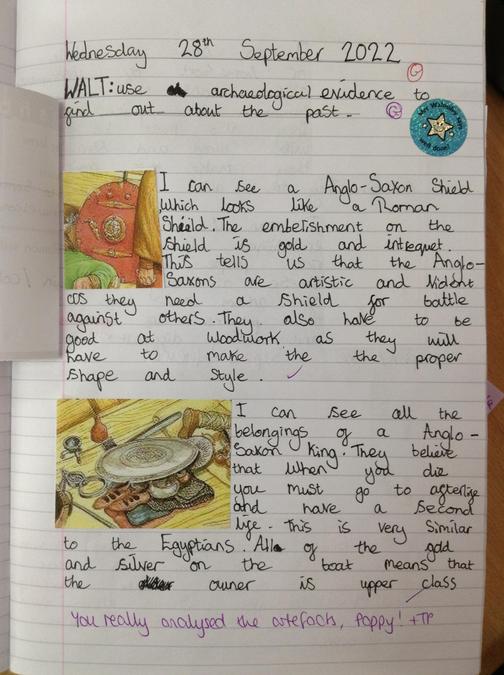 Wednesday 28th September 2022
G
WALT: use archaeological evidence to
find out about the past.
G
Mrs Walmsley says
well done!
I can see a Anglo-Saxon Shield
which looks like a Roman
Shield. The embelishment on the
shield is gold and intrequet.
This tells us that the Anglo-
Saxons are artistic and violent
as they need a shield for battle
against others. They also have to be
good at woodwork as they will
have to make the the proper
shape and style.
I can see all the
belongings of a Anglo-
Saxon King. They believe
that when you die
you must go to afterlife
and have a second
life. This is very similar
to the Egyptians. All of the gold
and silver on the boat means that
the owner is upper class
You really analysed the artefacts, Poppy! +TP